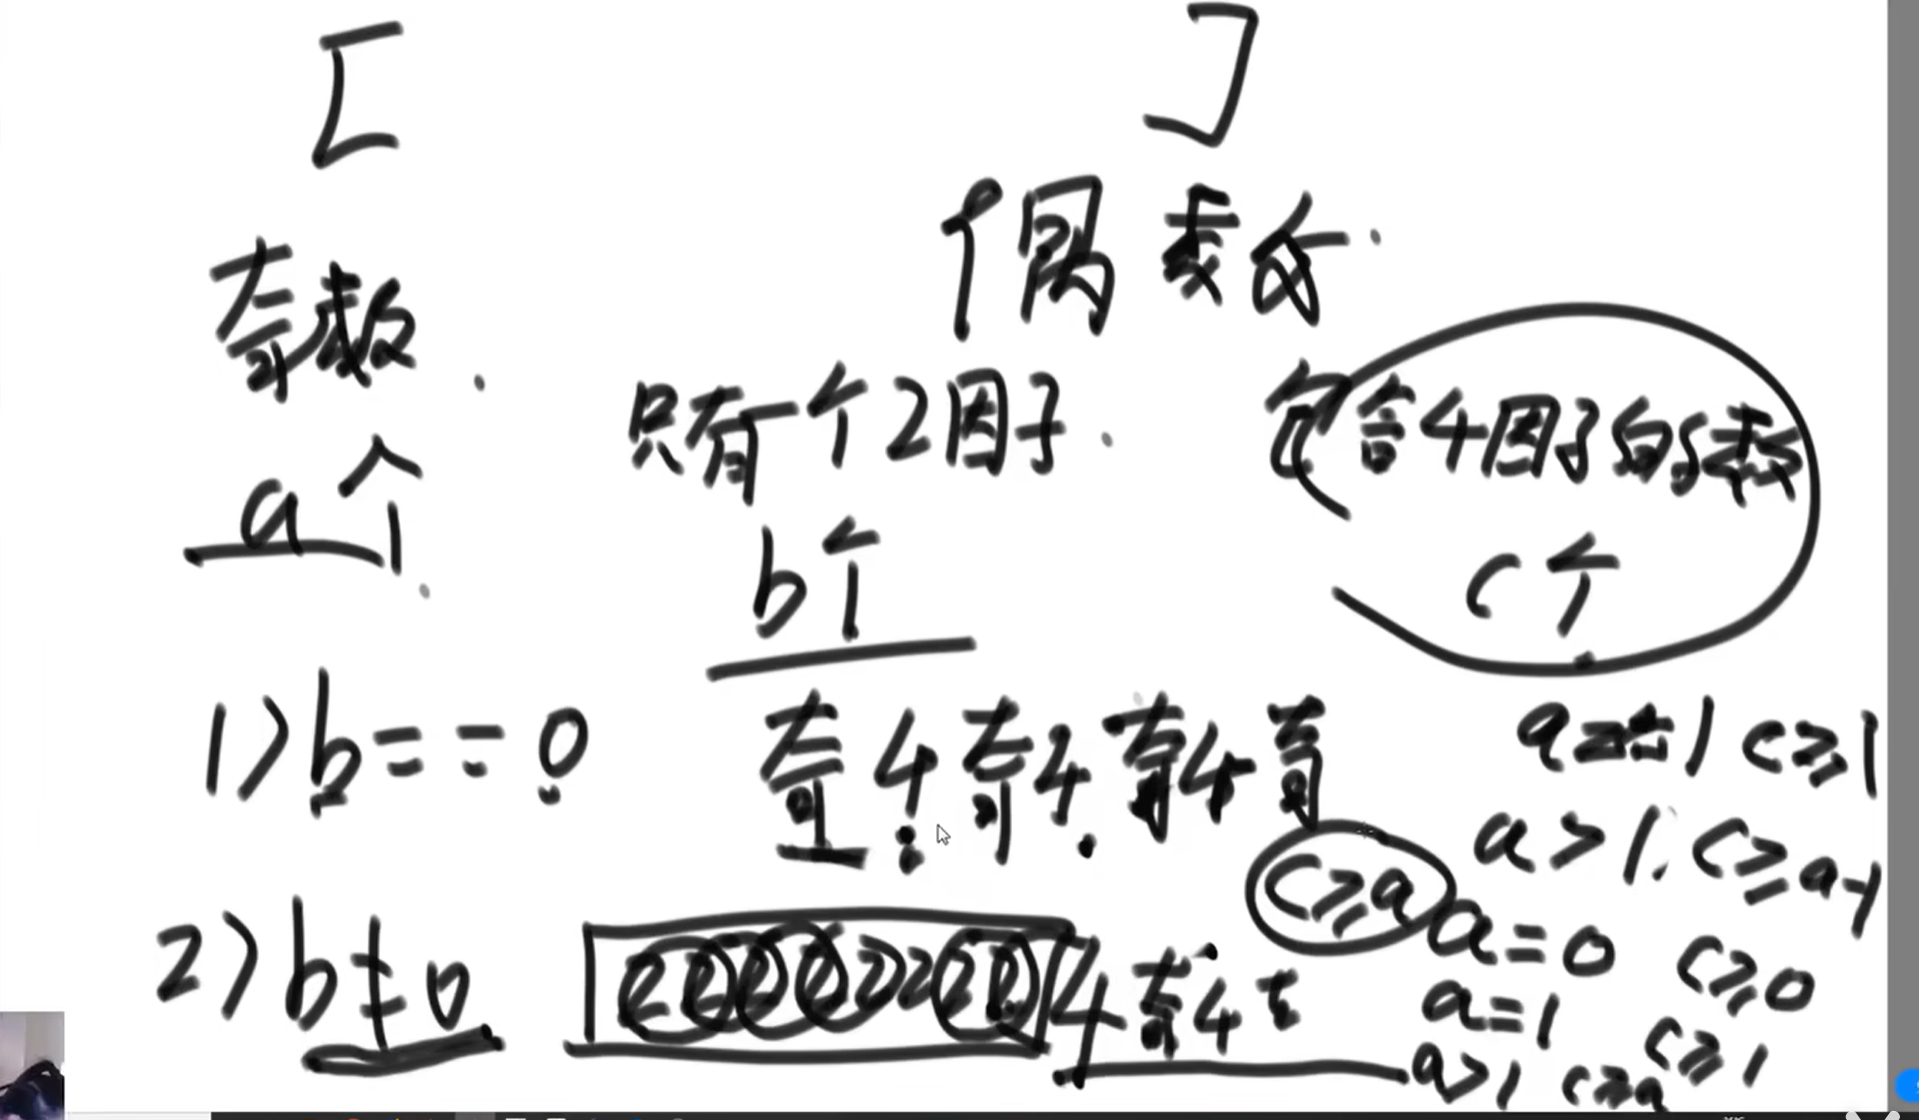 [ ]
奇数 偶数
只有一个2因子 包含4因子的数
a个 b个 c个
1) b==0 奇4奇4奇4奇 a=1 c≥1
a>1 c≥a-1
c≥a a=0 c≥0
2) b≠0 22222222 4奇4奇 a=1 c≥1
a>1 c≥a